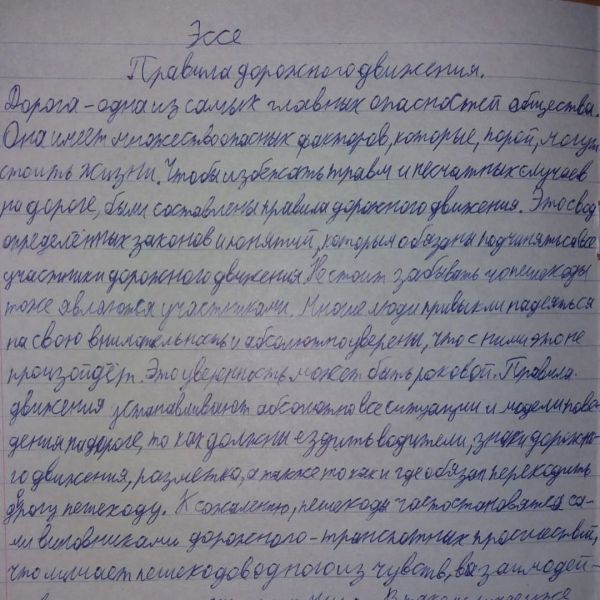 Эссе
Правила дорожного движения.
Дорога - одна из самых главных опасностей общества.
Она имеет множество опасных факторов, которые, порой, могут
стоить жизни. Чтобы избежать травм и несчатных случаев
на дороге, были составлены правила дорожного движения. Это свод
определённых законов и понятий, которым обязаны подчиняться все
участники дорожного движения. Не стоит забывать что пешеходы
тоже являются участниками. Многие люди привыкли надеяться
на свою внимательность и абсолютно уверены, что с ними это не
произойдёт. Эта уверенность может быть роковой. Правила
движения устанавливают абсолютно все ситуации и модели пове-
дения на дороге, то как должны ездить водители, знаки дорожно-
го движения, разметка, а также то как и где обязан переходить
дорогу пешеход. К сожалению, пешеходы часто становятся са-
ми виновниками дорожного-транспортных происшествий,
что лишает пешеходов одного из чувств, взаимодей-